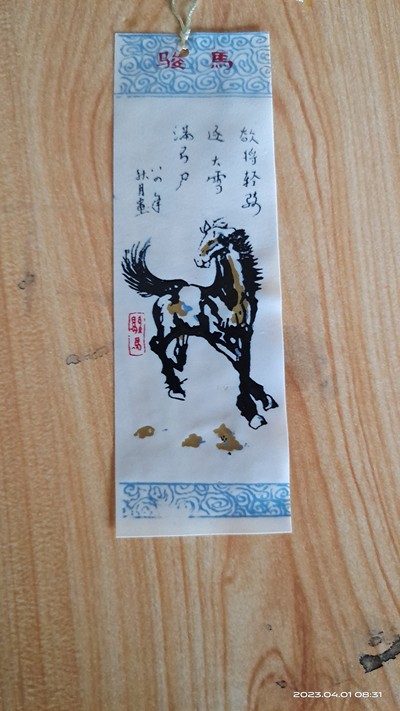 骏馬
欲将轻骑
逐大雪
满弓刀
秋月画
2023.04.01 08:31